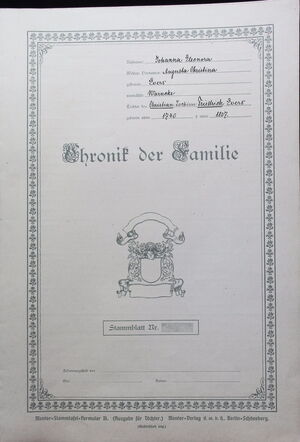 Rufname: Johanna Eleonora
Weitere Vornamen: Augusta Christina
geborene Evers
verehelichte Warncke
Tochter des Christian Joachim Friedrich Evers
geboren anno 1740 † anno 1807.
Chronik der Familie
Stammblatt Nr.
Aufgestellt von
Ort
Datum
Munter-Stammtafel-Formular B. (Ausgabe für Töchter.) Munter-Verlag G. m. b. H. Berlin-Schöneberg.